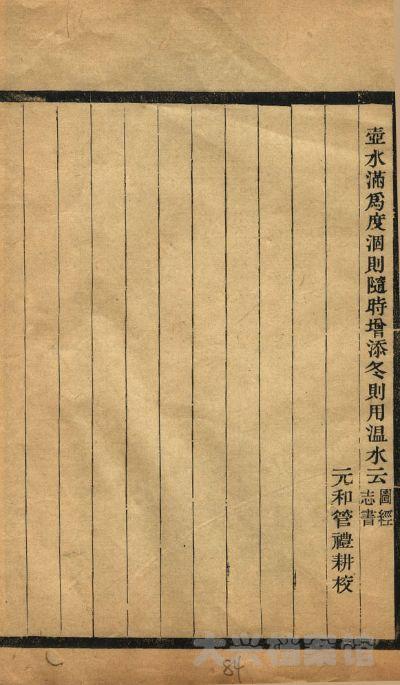 壺水滿爲度涸則隨時增添冬則用温水云圖經志書
元和管禮耕校
84
大兴档案馆